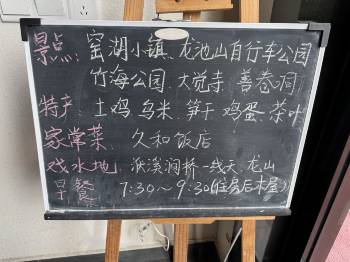 景点: 窑湖小镇、龙池山自行车公园
竹海公园、大觉寺、善卷洞
特产: 土鸡、乌米、笋干、鸡蛋、茶叶
家常菜: 久和饭店
戏水地: 涧桥、一线天、龙山
早餐 7:30～9:30(住房后木屋)